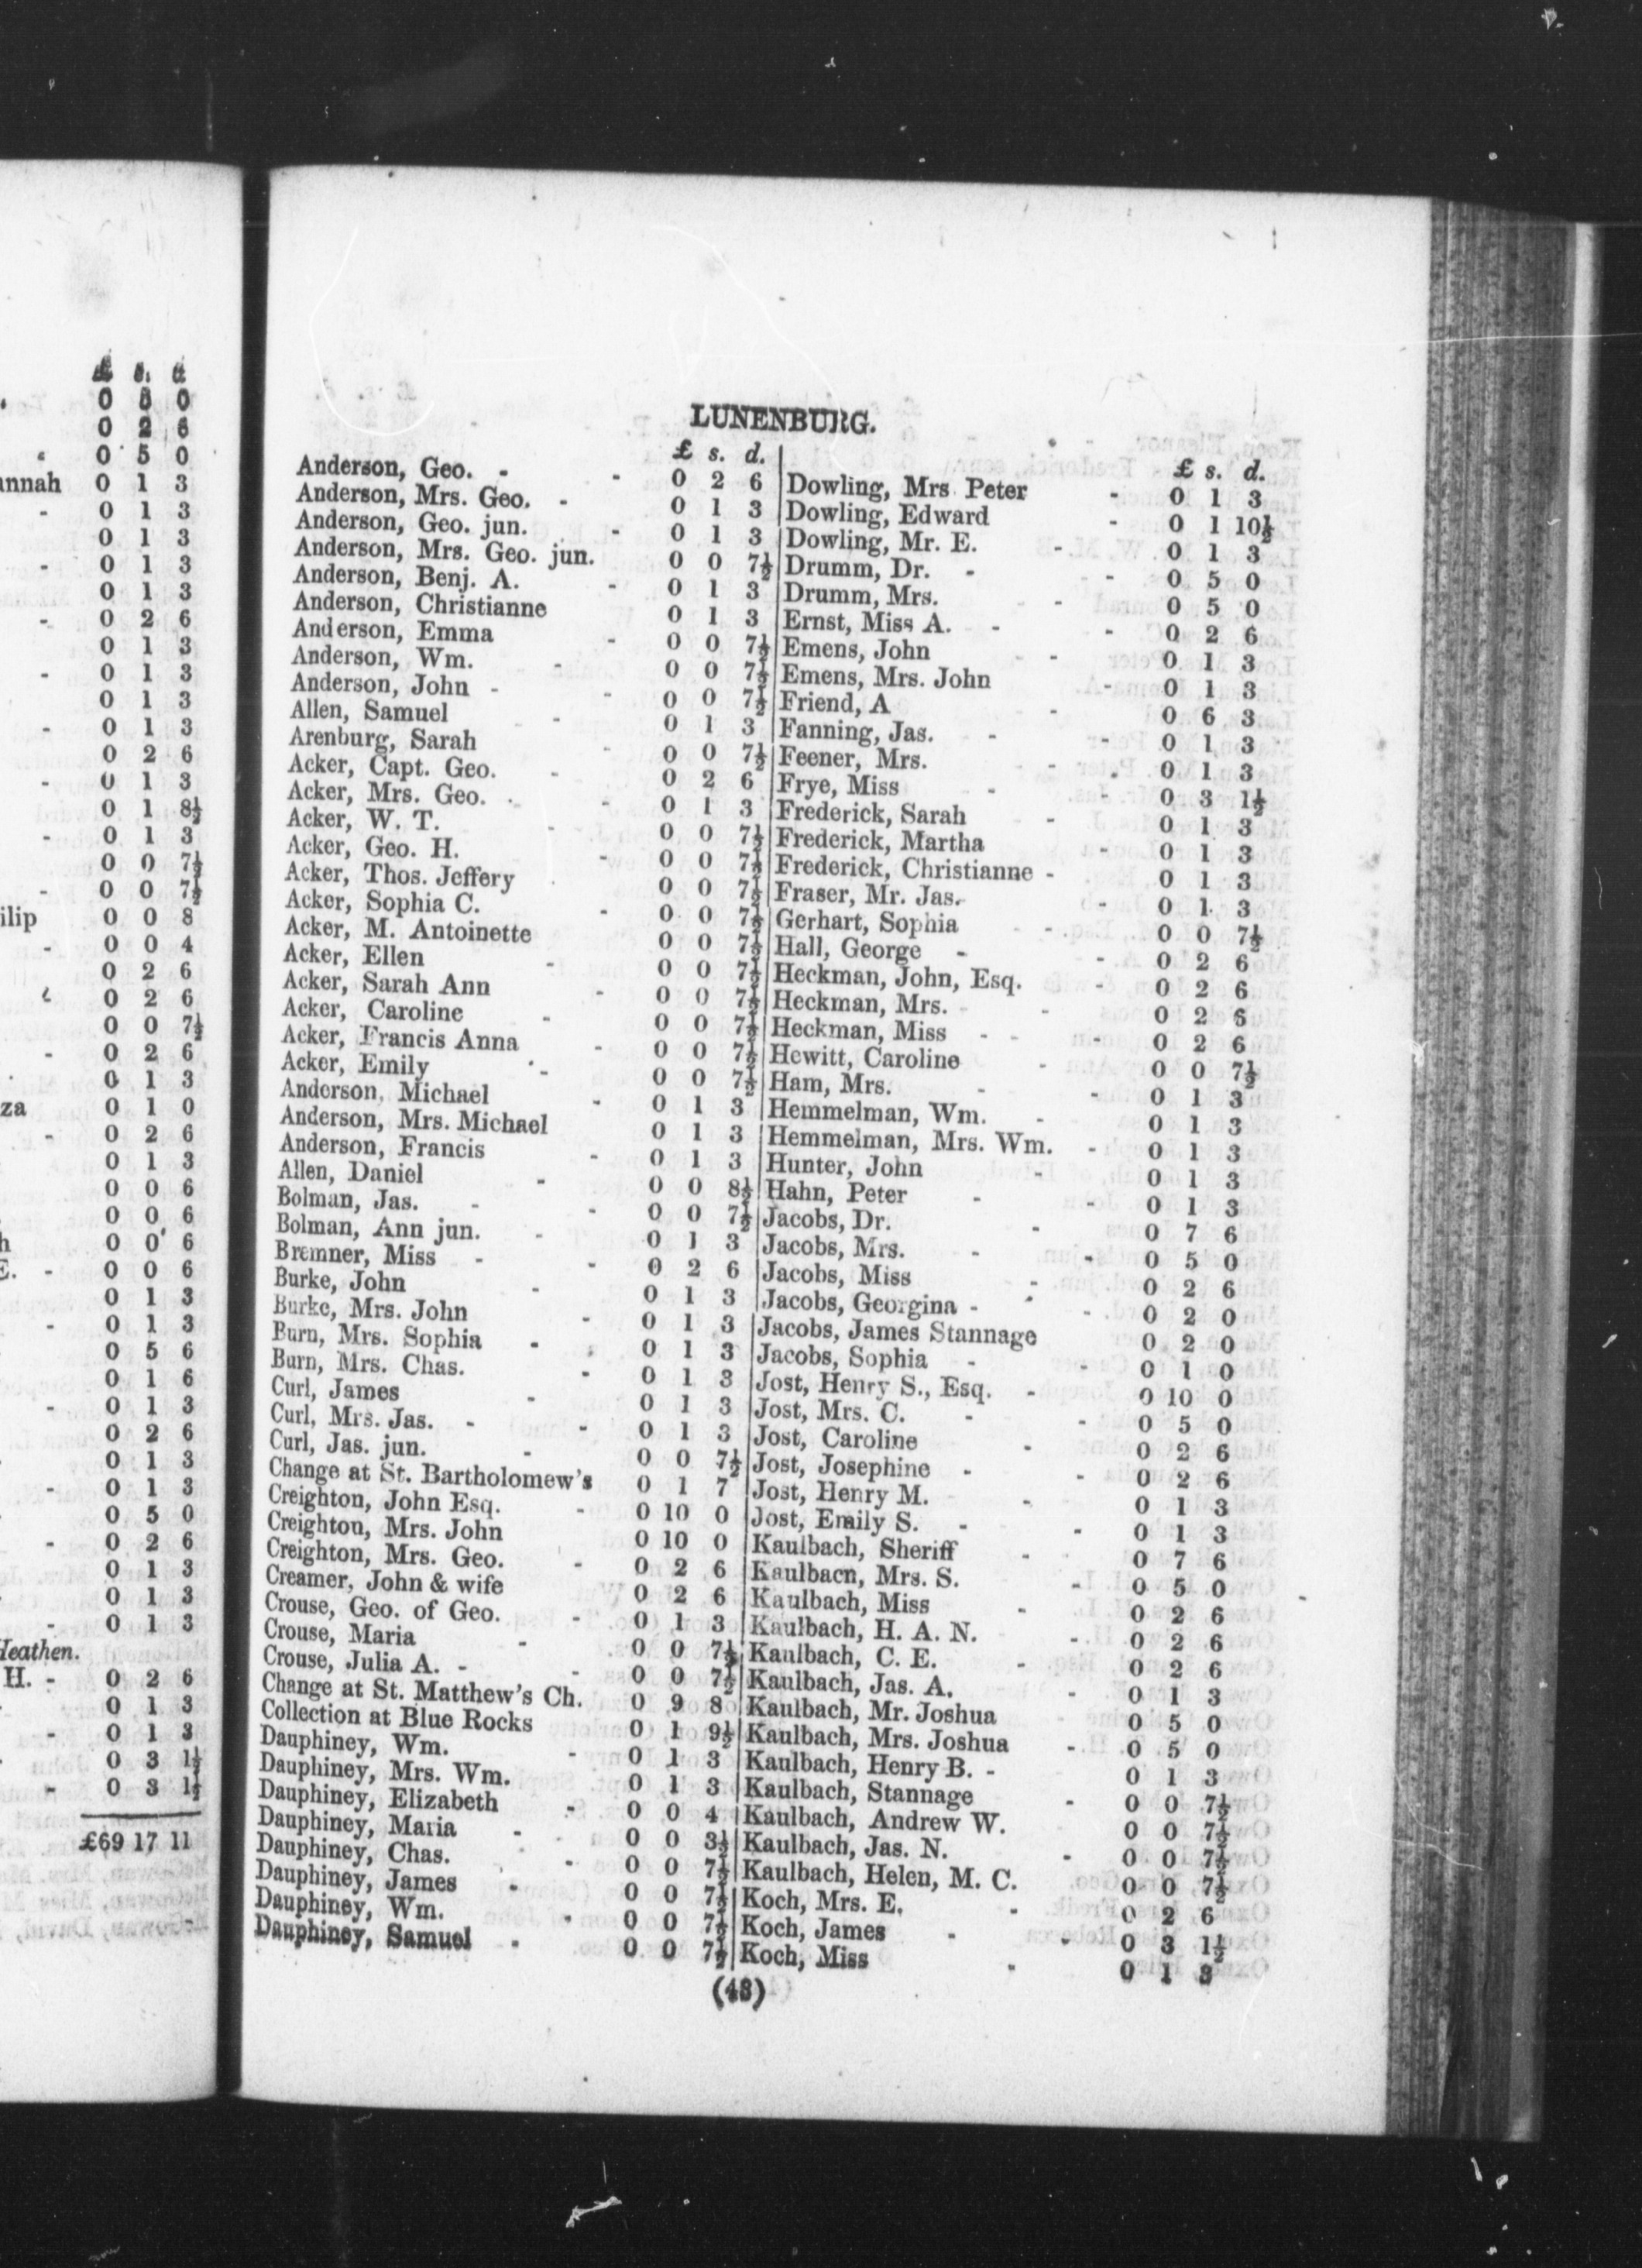 £ s. d
0 5 0
0 2 6
0 5 0
annah 0 1 3
- 0 1 3
0 1 3
- 0 1 3
0 1 3
- 0 2 6
0 1 3
- 0 1 3
0 1 3
- 0 1 3
0 2 6
- 0 1 3
0 1 8½
- 0 1 3
0 0 7½
- 0 0 7½
ilip 0 0 8
- 0 0 4
0 2 6
0 2 6
0 0 7½
- 0 2 6
0 1 3
za 0 1 0
- 0 2 6
0 1 3
0 0 6
0 0 6
h 0 0 6
E. - 0 0 6
0 1 3
- 0 1 3
0 5 6
0 1 6
- 0 1 3
0 2 6
0 1 3
- 0 1 3
0 5 0
- 0 2 6
0 1 3
0 1 3
- 0 1 3
Heathen.
H. - 0 2 6
0 1 3
- 0 1 3
0 3 1½
- 0 3 1½
£69 17 11
LUNENBURG.
£ s. d.
Anderson, Geo. - - 0 2 6
Anderson, Mrs. Geo. - 0 1 3
Anderson, Geo. jun. - 0 1 3
Anderson, Mrs. Geo. jun. 0 0 7½
Anderson, Benj. A. - 0 1 3
Anderson, Christianne 0 1 3
Anderson, Emma - 0 0 7½
Anderson, Wm. - 0 0 7½
Anderson, John - - 0 0 7½
Allen, Samuel - 0 1 3
Arenburg, Sarah - 0 0 7½
Acker, Capt. Geo. - 0 2 6
Acker, Mrs. Geo. - 0 1 3
Acker, W. T. - 0 0 7½
Acker, Geo. H. - 0 0 7½
Acker, Thos. Jeffery 0 0 7½
Acker, Sophia C. - 0 0 7½
Acker, M. Antoinette 0 0 7½
Acker, Ellen - 0 0 7½
Acker, Sarah Ann - 0 0 7½
Acker, Caroline - 0 0 7½
Acker, Francis Anna - 0 0 7½
Acker, Emily - 0 0 7½
Anderson, Michael - 0 1 3
Anderson, Mrs. Michael 0 1 3
Anderson, Francis - 0 1 3
Allen, Daniel - 0 0 8½
Bolman, Jas. - - 0 0 7½
Bolman, Ann jun. - 0 1 3
Bremner, Miss - - 0 2 6
Burke, John - 0 1 3
Burke, Mrs. John - 0 1 3
Burn, Mrs. Sophia - 0 1 3
Burn, Mrs. Chas. - 0 1 3
Curl, James - 0 1 3
Curl, Mrs. Jas. - - 0 1 3
Curl, Jas. jun. - 0 0 7½
Change at St. Bartholomew's 0 1 7
Creighton, John Esq. - 0 10 0
Creighton, Mrs. John 0 10 0
Creighton, Mrs. Geo. - 0 2 6
Creamer, John & wife 0 2 6
Crouse, Geo. of Geo. - 0 1 3
Crouse, Maria - 0 0 7½
Crouse, Julia A. - - 0 0 7½
Change at St. Matthew's Ch. 0 9 8
Collection at Blue Rocks 0 1 9½
Dauphiney, Wm. - 0 1 3
Dauphiney, Mrs. Wm. 0 1 3
Dauphiney, Elizabeth - 0 0 4
Dauphiney, Maria - 0 0 3½
Dauphiney, Chas. - 0 0 7½
Dauphiney, James - 0 0 7½
Dauphiney, Wm. - 0 0 7½
Dauphiney, Samuel - 0 0 7½
£ s. d.
Dowling, Mrs. Peter - 0 1 3
Dowling, Edward - 0 1 10½
Dowling, Mr. E. - 0 1 3
Drumm, Dr. - - 0 5 0
Drumm, Mrs. - 0 5 0
Ernst, Miss A. - - 0 2 6
Emens, John - 0 1 3
Emens, Mrs. John - 0 1 3
Friend, A - 0 6 3
Fanning, Jas. - - 0 1 3
Feener, Mrs. - 0 1 3
Frye, Miss - - 0 3 1½
Frederick, Sarah - 0 1 3
Frederick, Martha - 0 1 3
Frederick, Christianne - 0 1 3
Fraser, Mr. Jas. - 0 1 3
Gerhart, Sophia - 0 0 7½
Hall, George - - 0 2 6
Heckman, John, Esq. - 0 2 6
Heckman, Mrs. - - 0 2 6
Heckman, Miss - - 0 2 6
Hewitt, Caroline - 0 0 7½
Ham, Mrs. - - 0 1 3
Hemmelman, Wm. - 0 1 3
Hemmelman, Mrs. Wm. - 0 1 3
Hunter, John - 0 1 3
Hahn, Peter - - 0 1 3
Jacobs, Dr. - 0 7 6
Jacobs, Mrs. - - 0 5 0
Jacobs, Miss - 0 2 6
Jacobs, Georgina - - 0 2 0
Jacobs, James Stannage 0 2 0
Jacobs, Sophia - - 0 1 0
Jost, Henry S., Esq. - 0 10 0
Jost, Mrs. C. - - 0 5 0
Jost, Caroline - 0 2 6
Jost, Josephine - - 0 2 6
Jost, Henry M. - 0 1 3
Jost, Emily S. - - 0 1 3
Kaulbach, Sheriff - 0 7 6
Kaulbacn, Mrs. S. - 0 5 0
Kaulbach, Miss - 0 2 6
Kaulbach, H. A. N. - 0 2 6
Kaulbach, C. E. - 0 2 6
Kaulbach, Jas. A. - 0 1 3
Kaulbach, Mr. Joshua 0 5 0
Kaulbach, Mrs. Joshua - 0 5 0
Kaulbach, Henry B. - 0 1 3
Kaulbach, Stannage - 0 0 7½
Kaulbach, Andrew W. 0 0 7½
Kaulbach, Jas. N. - 0 0 7½
Kaulbach, Helen, M. C. 0 0 7½
Koch, Mrs. E. - 0 2 6
Koch, James - - 0 3 1½
Koch, Miss - 0 1 3
(43)